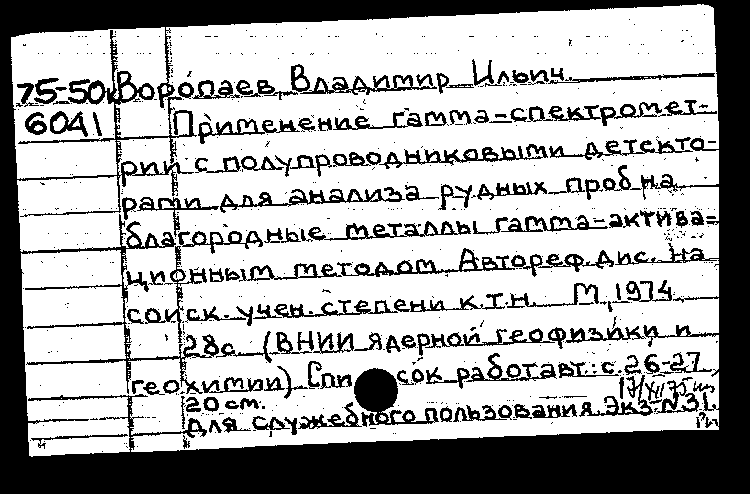 75-50к Воропаев, Владимир Ильич.
6041 Применение гамма-спектромет-
рии с полупроводниковыми детекто-
рами для анализа рудных проб на
благородные металлы гамма-актива=
ционным методом. Автореф. дис. на
соиск. учен. степени к.т.н. М, 1974
28с (ВНИИ ядерной геофизики и
геохимии). Список работ авт: с. 26-27
20 см.
Для служебного пользования. Экз. N31.